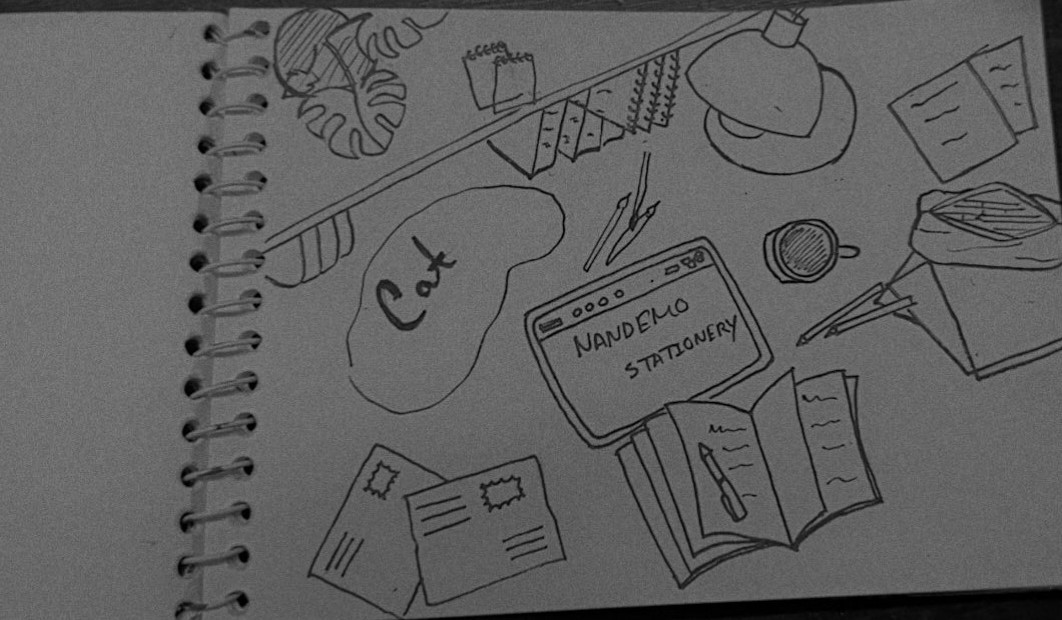 Cat
NANDEMO
STATIONERY